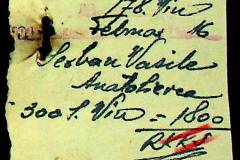 178. Viu
Telmas 16
Serban Vasile
Anatolierea
300 l. Viu = 1800